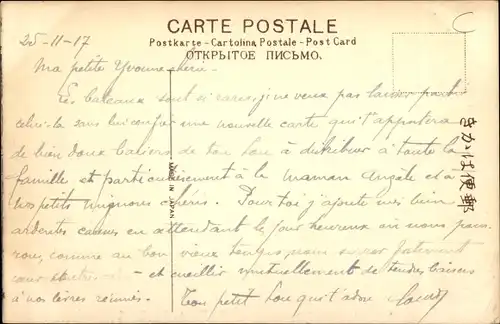 CARTE POSTALE
Postkarte - Cartolina Postale - Post Card
ОТКРЫТОЕ ПИСЬМО.
25-11-17
Ma petite Yvonne chérie.
Les bateaux sont si rares, je ne veux pas laisser partir
celui-là sans lui confier une nouvelle carte qui t'apportera
de bien doux baisers de ton Lou à distribuer à toute la
famille et particulièrement à la Maman Angèle et à
nos petits mignons chéris. Pour toi j'ajoute mes bien
ardentes caresses en attendant le jour heureux où nous pour-
rons, comme au bon vieux temps, nous serrer
cœur - et cueillir mutuellement de tendres baisers
à nos lèvres réunies. Ton petit Lou qui t'adore
MADE IN JAPAN
きかは便郵